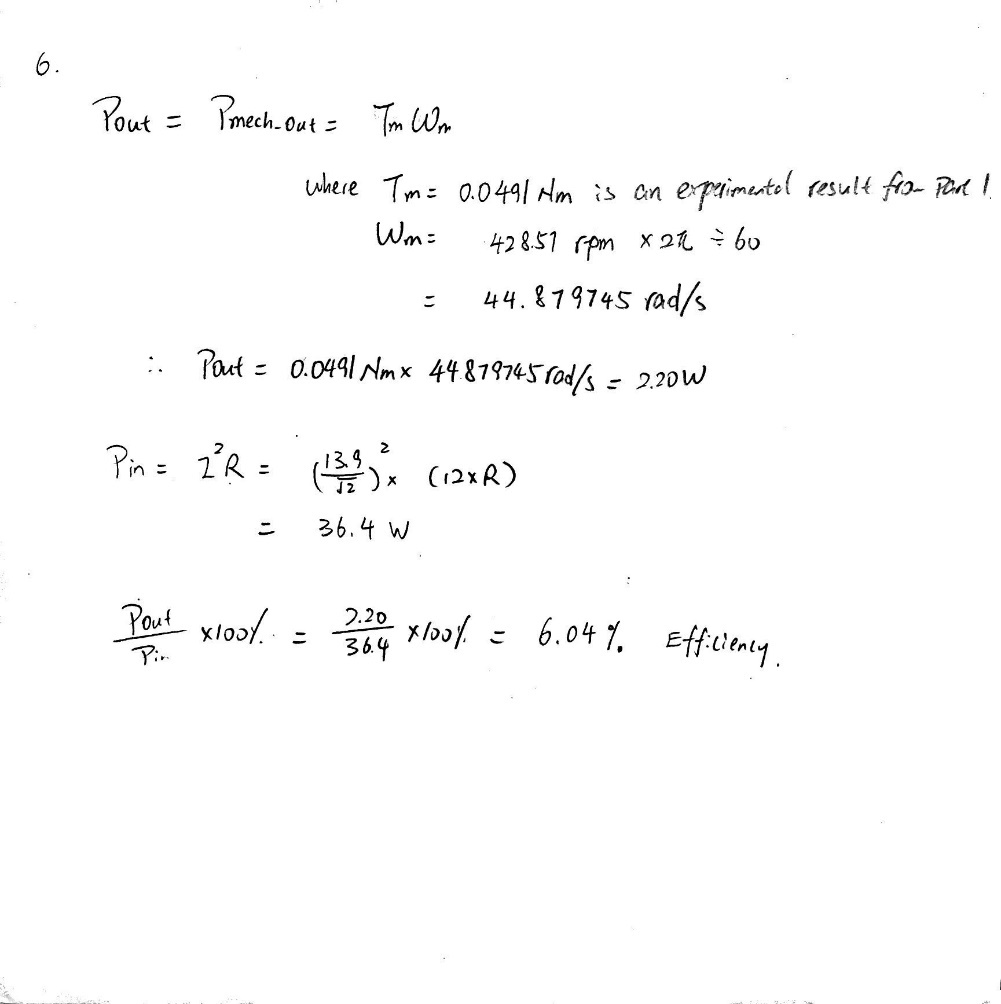 6.
Pout = Pmech-out = Tm Wm
where Tm = 0.0491 Nm is an experimental result from Part 1
Wm = 428.57 rpm × 2π ÷ 60
= 44.879745 rad/s
∴ Pout = 0.0491 Nm × 44.879745 rad/s = 2.20W
Pin = I²R = (13.9/√2)² × (12×R)
= 36.4 W
Pout/Pin ×100% = 2.20/36.4 ×100% = 6.04% Efficiency.